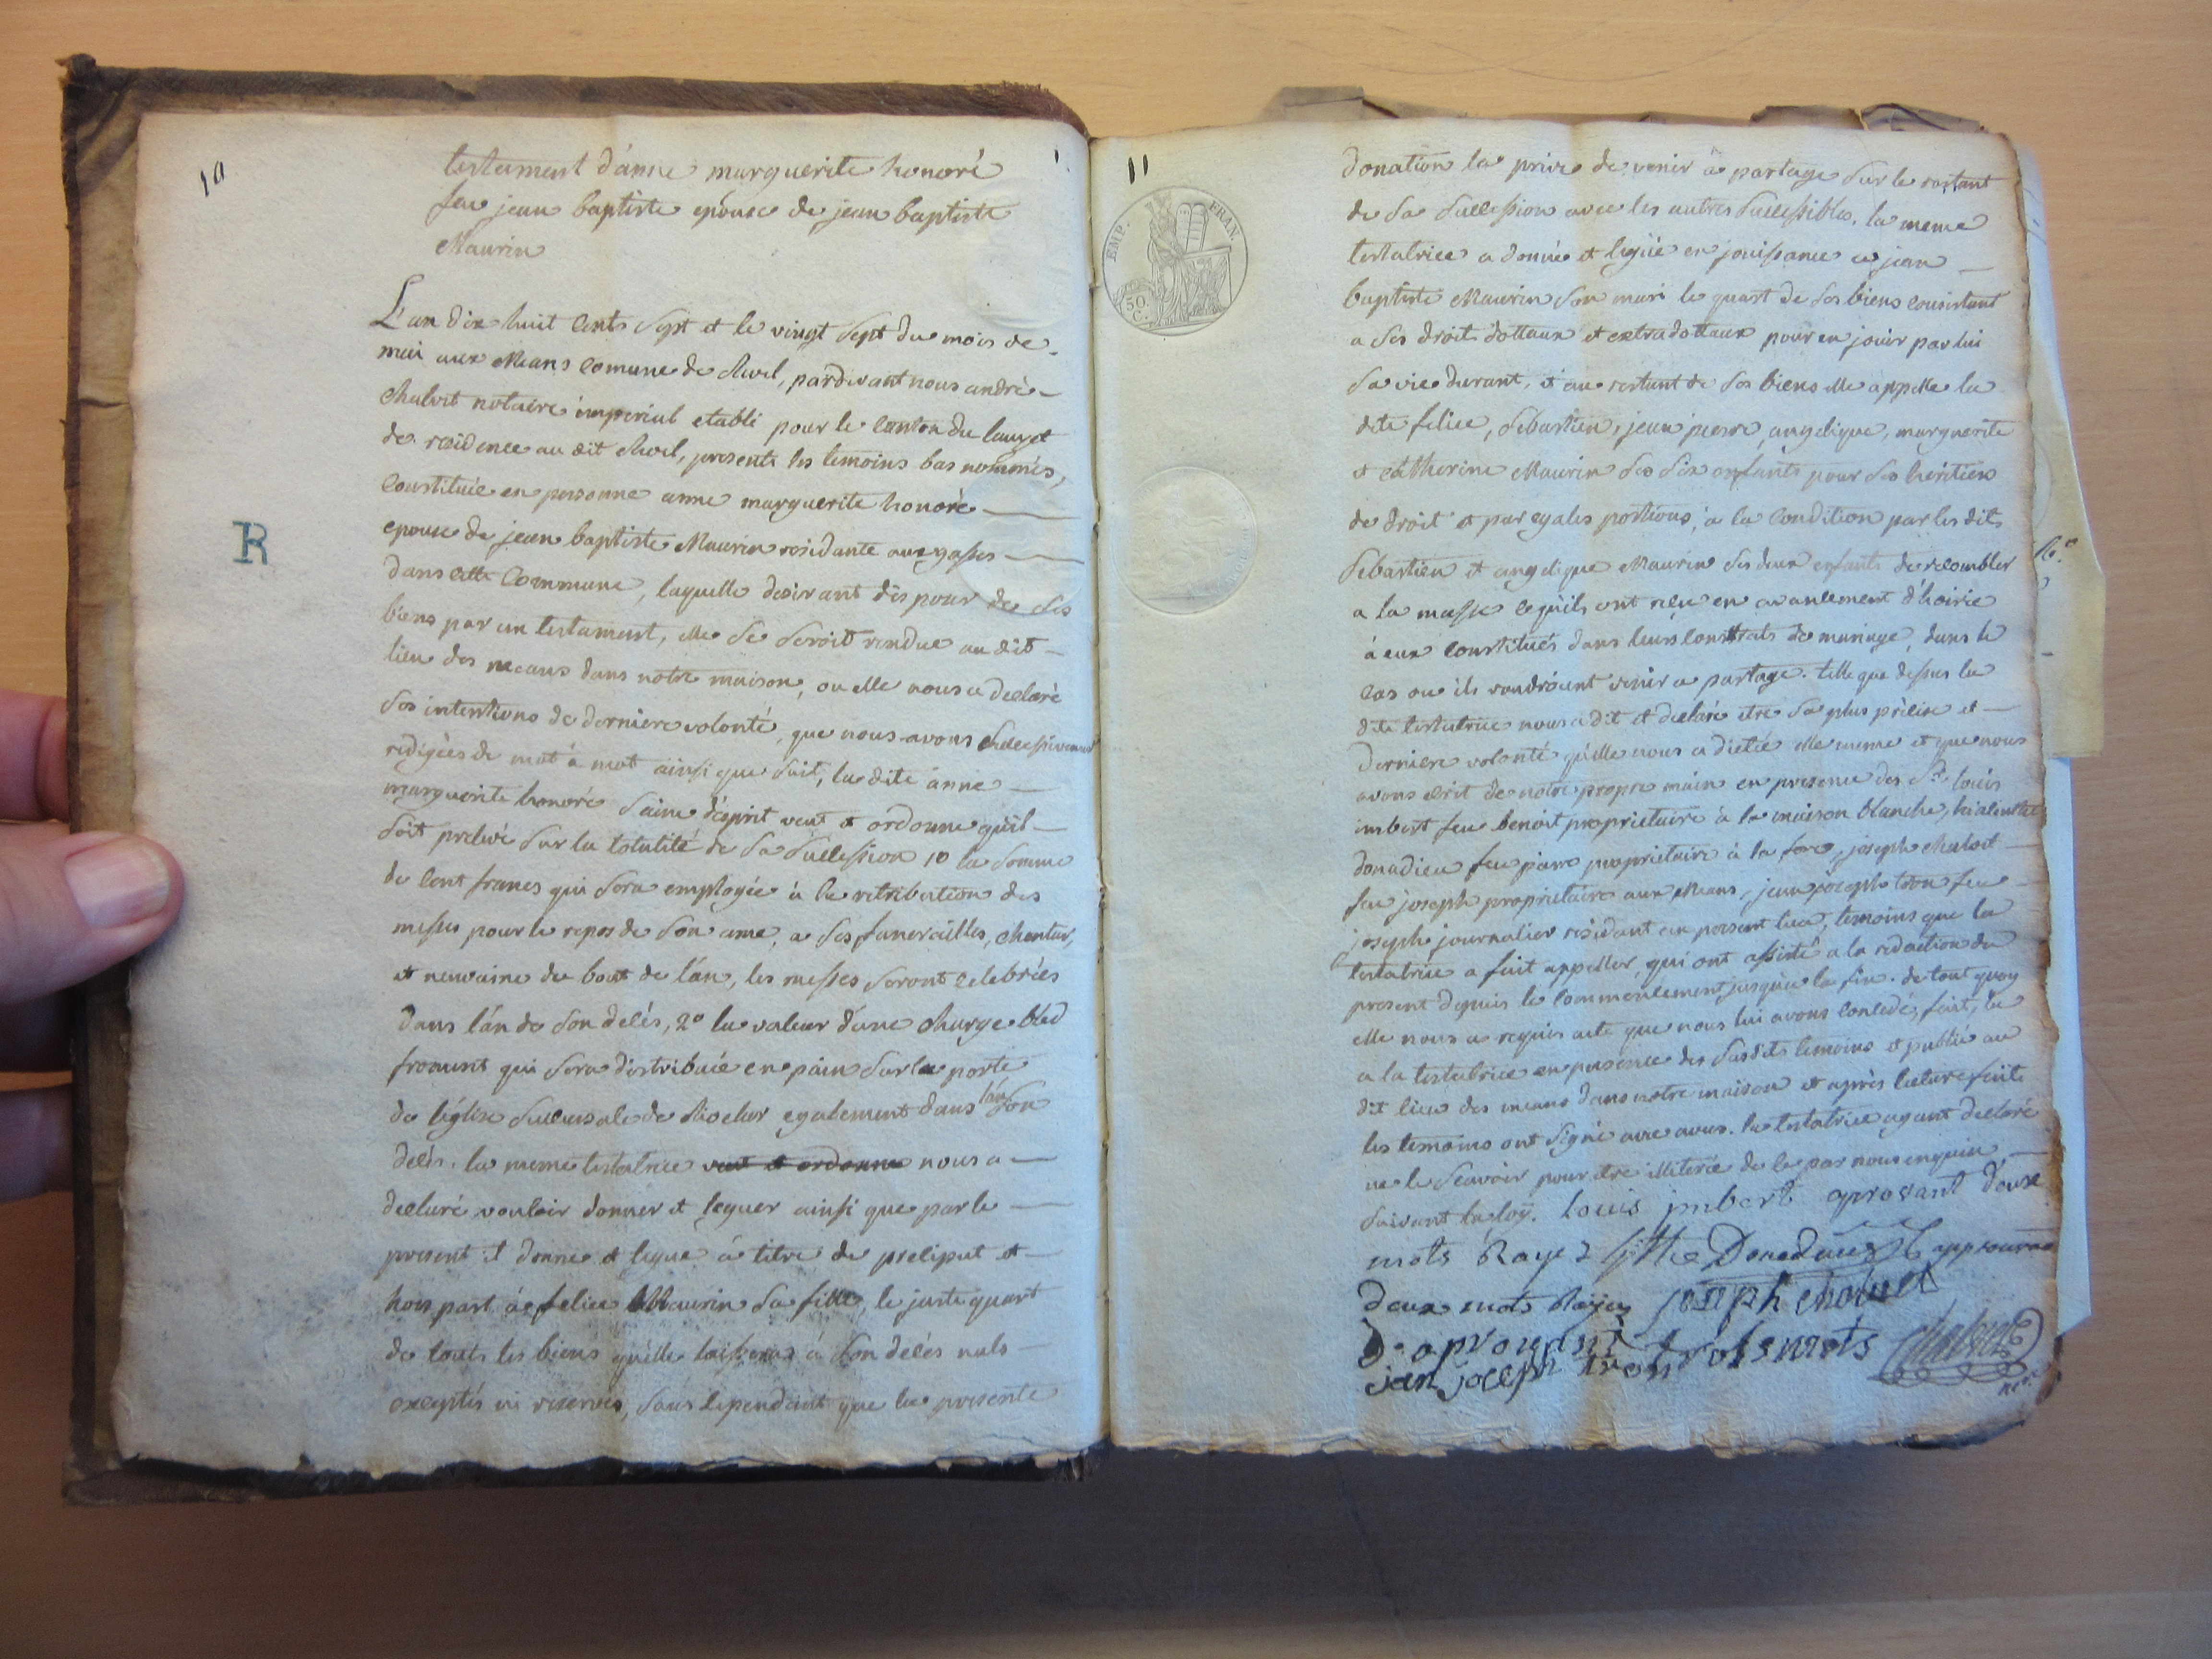 10
testament d'anne marguerite honoré
feu jean baptiste epouse de jean baptiste
Maurin
R
L'an dix huit cents sept et le vingt sept du mois de
mai aux Means comune de Revel, pardevant nous andré
chalvet notaire imperial etabli pour le canton du lauzet
de residence au dit Revel, presents les temoins bas nommés,
constituée en personne anne marguerite honoré
epouse de jean baptiste Maurin residante aux gasses
dans cette Commune, laquelle desirant dispouser de ses
biens par un testament, elle se seroit rendue au dit
lieu des means dans notre maison, ou elle nous a declaré
ses intentions de derniere volonté, que nous avons successivement
redigées de mot à mot ainsi que suit, la dite anne
marguerite honoré saine d'esprit veut et ordonne qu'il
soit prelevé sur la totalité de sa succession 1o la somme
de cent francs qui sera employée à la retribution des
messes pour le repos de son ame, a ses funerailles, chantar,
et neuvaine du bout de l'an, les messes seront celebrées
dans l'an de son decés, 2o la valeur d'une charge bled
froment qui sera distribuée en pain sur la porte
de l'église succursale de Rioclar egalement dans l'an son
decés. la meme testatrice veut et ordonne nous a
declaré vouloir donner et leguer ainsi que par le
present il donne et legue à titre de preliput et
hors part à felice Maurin sa fille, le juste quart
de touts les biens qu'elle laissera à son decés nuls
exceptés ni reservés, sans cependant que la presente
11
EMP. FRAN.
50 C.
donation la prive de venir à partage sur le restant
de sa succession avec les autres successibles. la meme
testatrice a donné et legué en jouissance a jean
baptiste Maurin son mari le quart de ses biens consistant
a ses droits dottaux et extradottaux pour en jouir par lui
sa vie durant, et au restant de ses biens elle appelle la
dite felice, Sebastien, jean pierre, angelique, marguerite
et catherine Maurin ses six enfants pour ses heritiers
de droit et par egales portions, a la condition par les dits
Sebastien et angelique Maurin ses deux enfants de recombler
a la masse ce qu'ils ont reçu en avancement d'hoirie
à eux constitués dans leurs contrats de mariage, dans le
cas ou ils voudroient venir a partage. telle que dessus la
dite testatrice nous a dit et declaré etre sa plus précise et
derniere volonté qu'elle nous a dictée elle meme et que nous
avons ecrit de notre propre main en presence des Srs louis
imbert feu benoit proprietaire à la maison blanche,
donadieu feu pierre proprietaire à la fore, joseph chalvet
feu joseph proprietaire aux Means, jean joseph tron feu
joseph journalier residant au present lieu, temoins que la
testatrice a fait appeller, qui ont assisté a la redaction du
present depuis le commencement jusqu'à la fin. de tout quoy
elle nous a requis acte que nous lui avons concedé, fait, lu
a la testatrice en presence des susdits temoins et publié au
dit lieu des means dans notre maison et après lecture faite
les temoins ont signé avec nous. la testatrice ayant declaré
ne le sçavoir pour etre illiterée de ce par nous enquise
suivant la loÿ. Louis jmbert aprovant deux
mots Rayé Donadieu approuvant
deux mots Rayés joseph chalvet
aprouvant trois mots chalvet
jean joseph tron nore